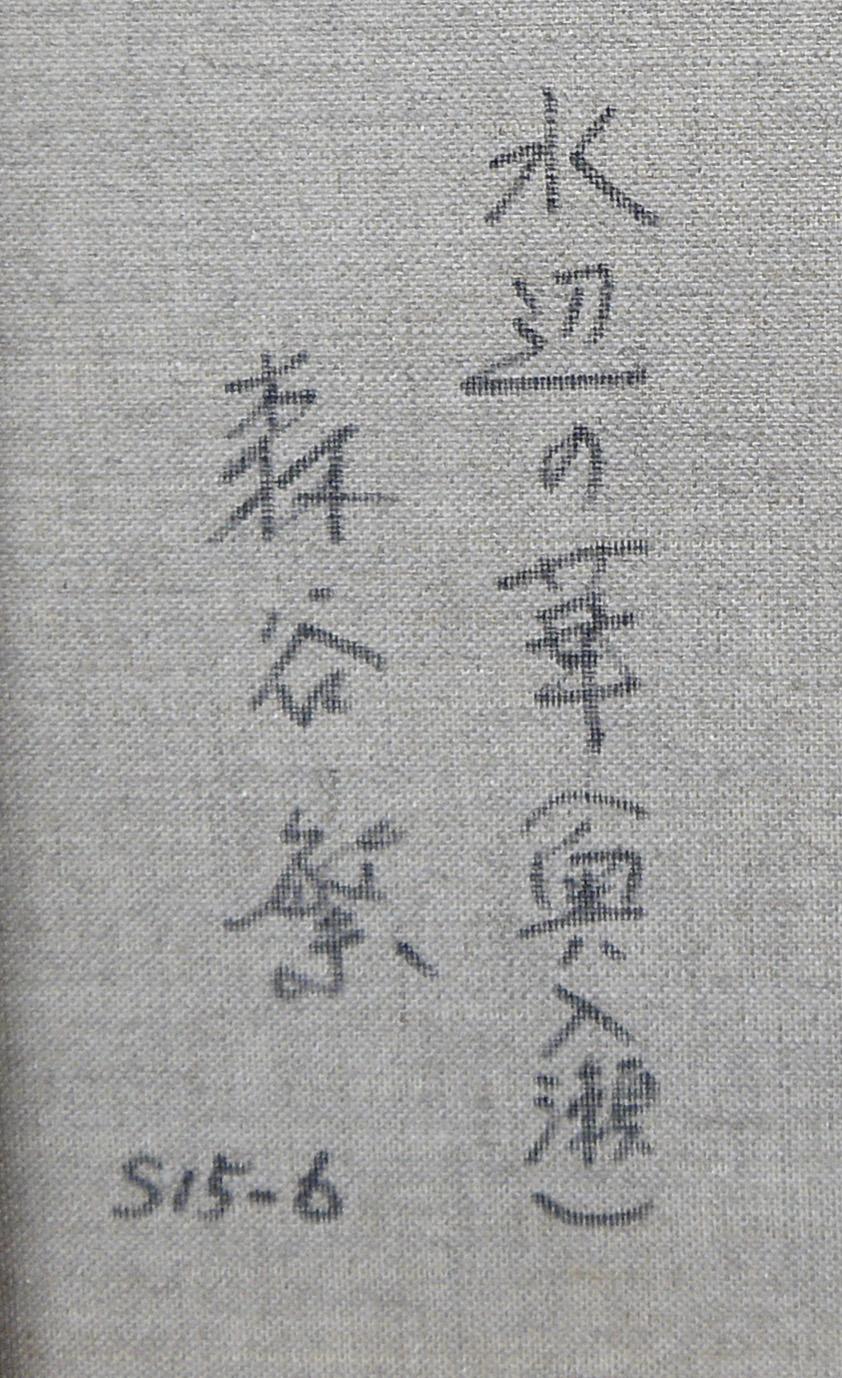 水辺の(奥入瀬)
森谷繁
S15-6